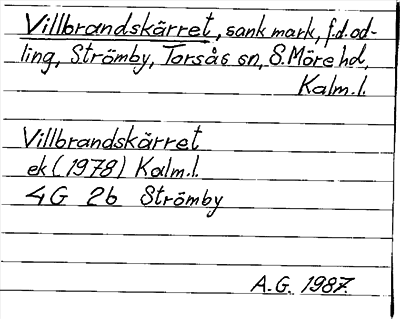 Villbrandskärret, sank mark, f.d. od-
ling, Strömby, Torsås sn, S. Möre hd,
Kalm. l.
Villbrandskärret
ek (1978) Kalm. l.
4G 2b Strömby
A.G. 1987.